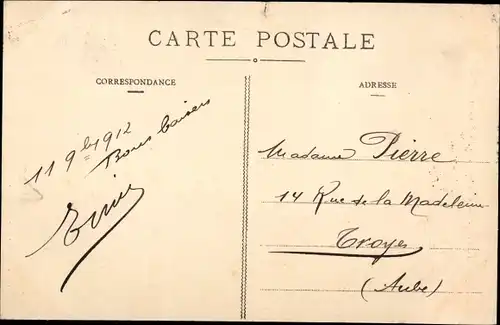 CARTE POSTALE
CORRESPONDANCE
ADRESSE
11 9bre 1912
Bons baisers
Madame Pierre
14 Rue de la Madeleine
Troyes
(Aube)